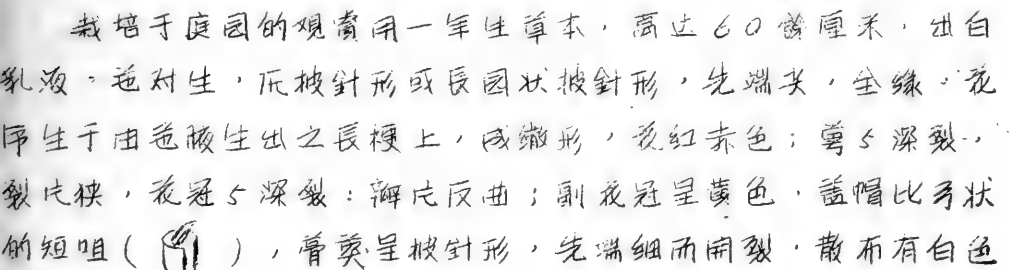 栽培于庭园的观賞用一年生草本，高达60餘厘米，出白
乳液。苞对生，爪披針形或長园状披針形，先端尖，全緣。花
序生于由苞腋生出之長梗上，成繖形，花紅赤色；萼5深裂，
裂片狭，花冠5深裂：瓣片反曲；副花冠呈黄色，盖帽比弓状
的短咀（ ），膏葖呈披針形，先端細而開裂，散布有白色